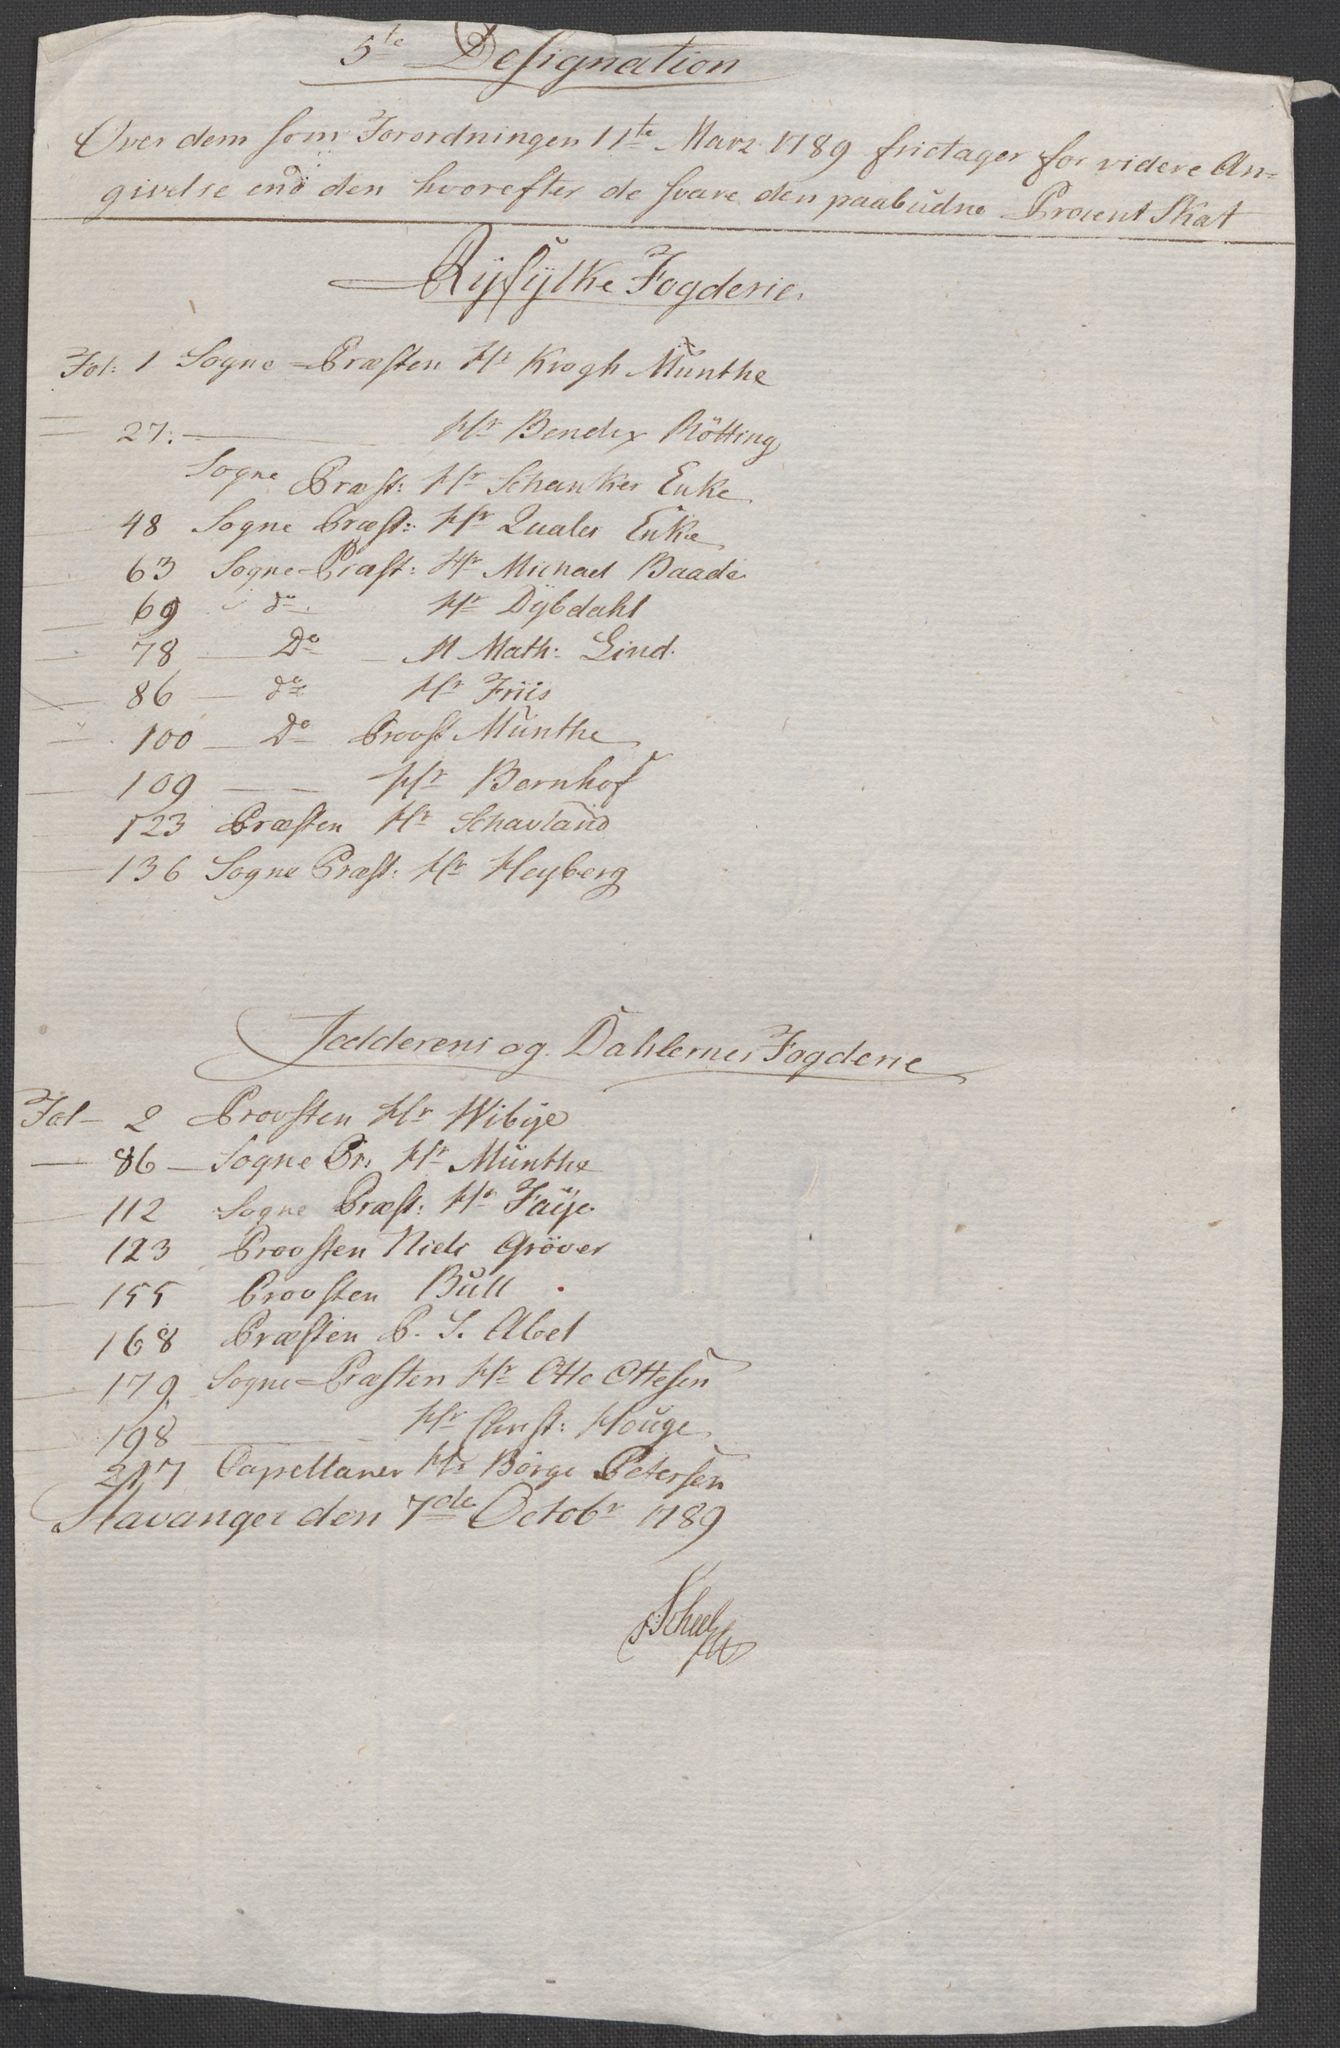 5te Designation
Over dem som Forordningen 11te Marz 1789 frietager for videre An=
givelse end den hvorefter de svare den paabudne Procent Skat
Ryfylke Fogderie
Fol: 1 Sogne-Præsten Hr Krogh Munthe
27. Hr Bendix Rötting
Sogne Præst: Hr Schanker Enke
48 Sogne Præst: Hr Qvales Enke
63 Sogne-Præst: Hr Michael Baade
69 do Hr Dÿbdahl
78 Do M Math: Lind.
86 do Hr Friis
100 Do Provst Munthe
109 Hr Bernhof
123 Præsten Hr Schavland
136 Sogne Præst: Hr Heyberg
Jædderens og Dahlernes Fogderie
Fol 2 Provsten Hr Wibÿe
86 Sogne Pr. Hr Munthe
112 Sogne Præst: Hr Faÿe
123 Provsten Niels Gröver
155 Provsten Bull
168 Præsten P. S. Abel
179 Sogne-Præsten Hr Otto Ottesen
198 Hr Christ: Houge
217 Capellaner Hr Börge Petersen
Stavanger den 7de Octobr 1789
Scheel